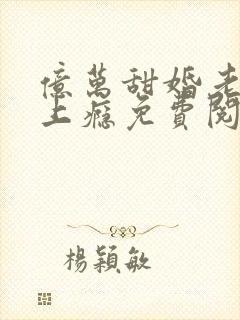 億萬甜婚老
上癮免費閱
楊穎敏